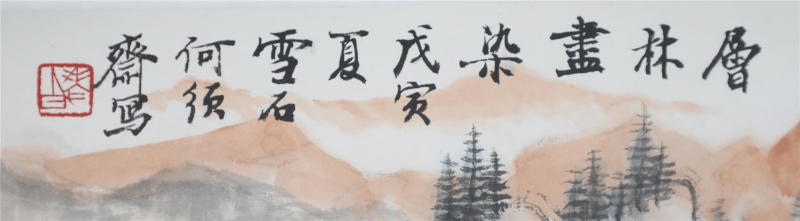 層林盡染
戊寅
夏
雪石
何須
齋寫